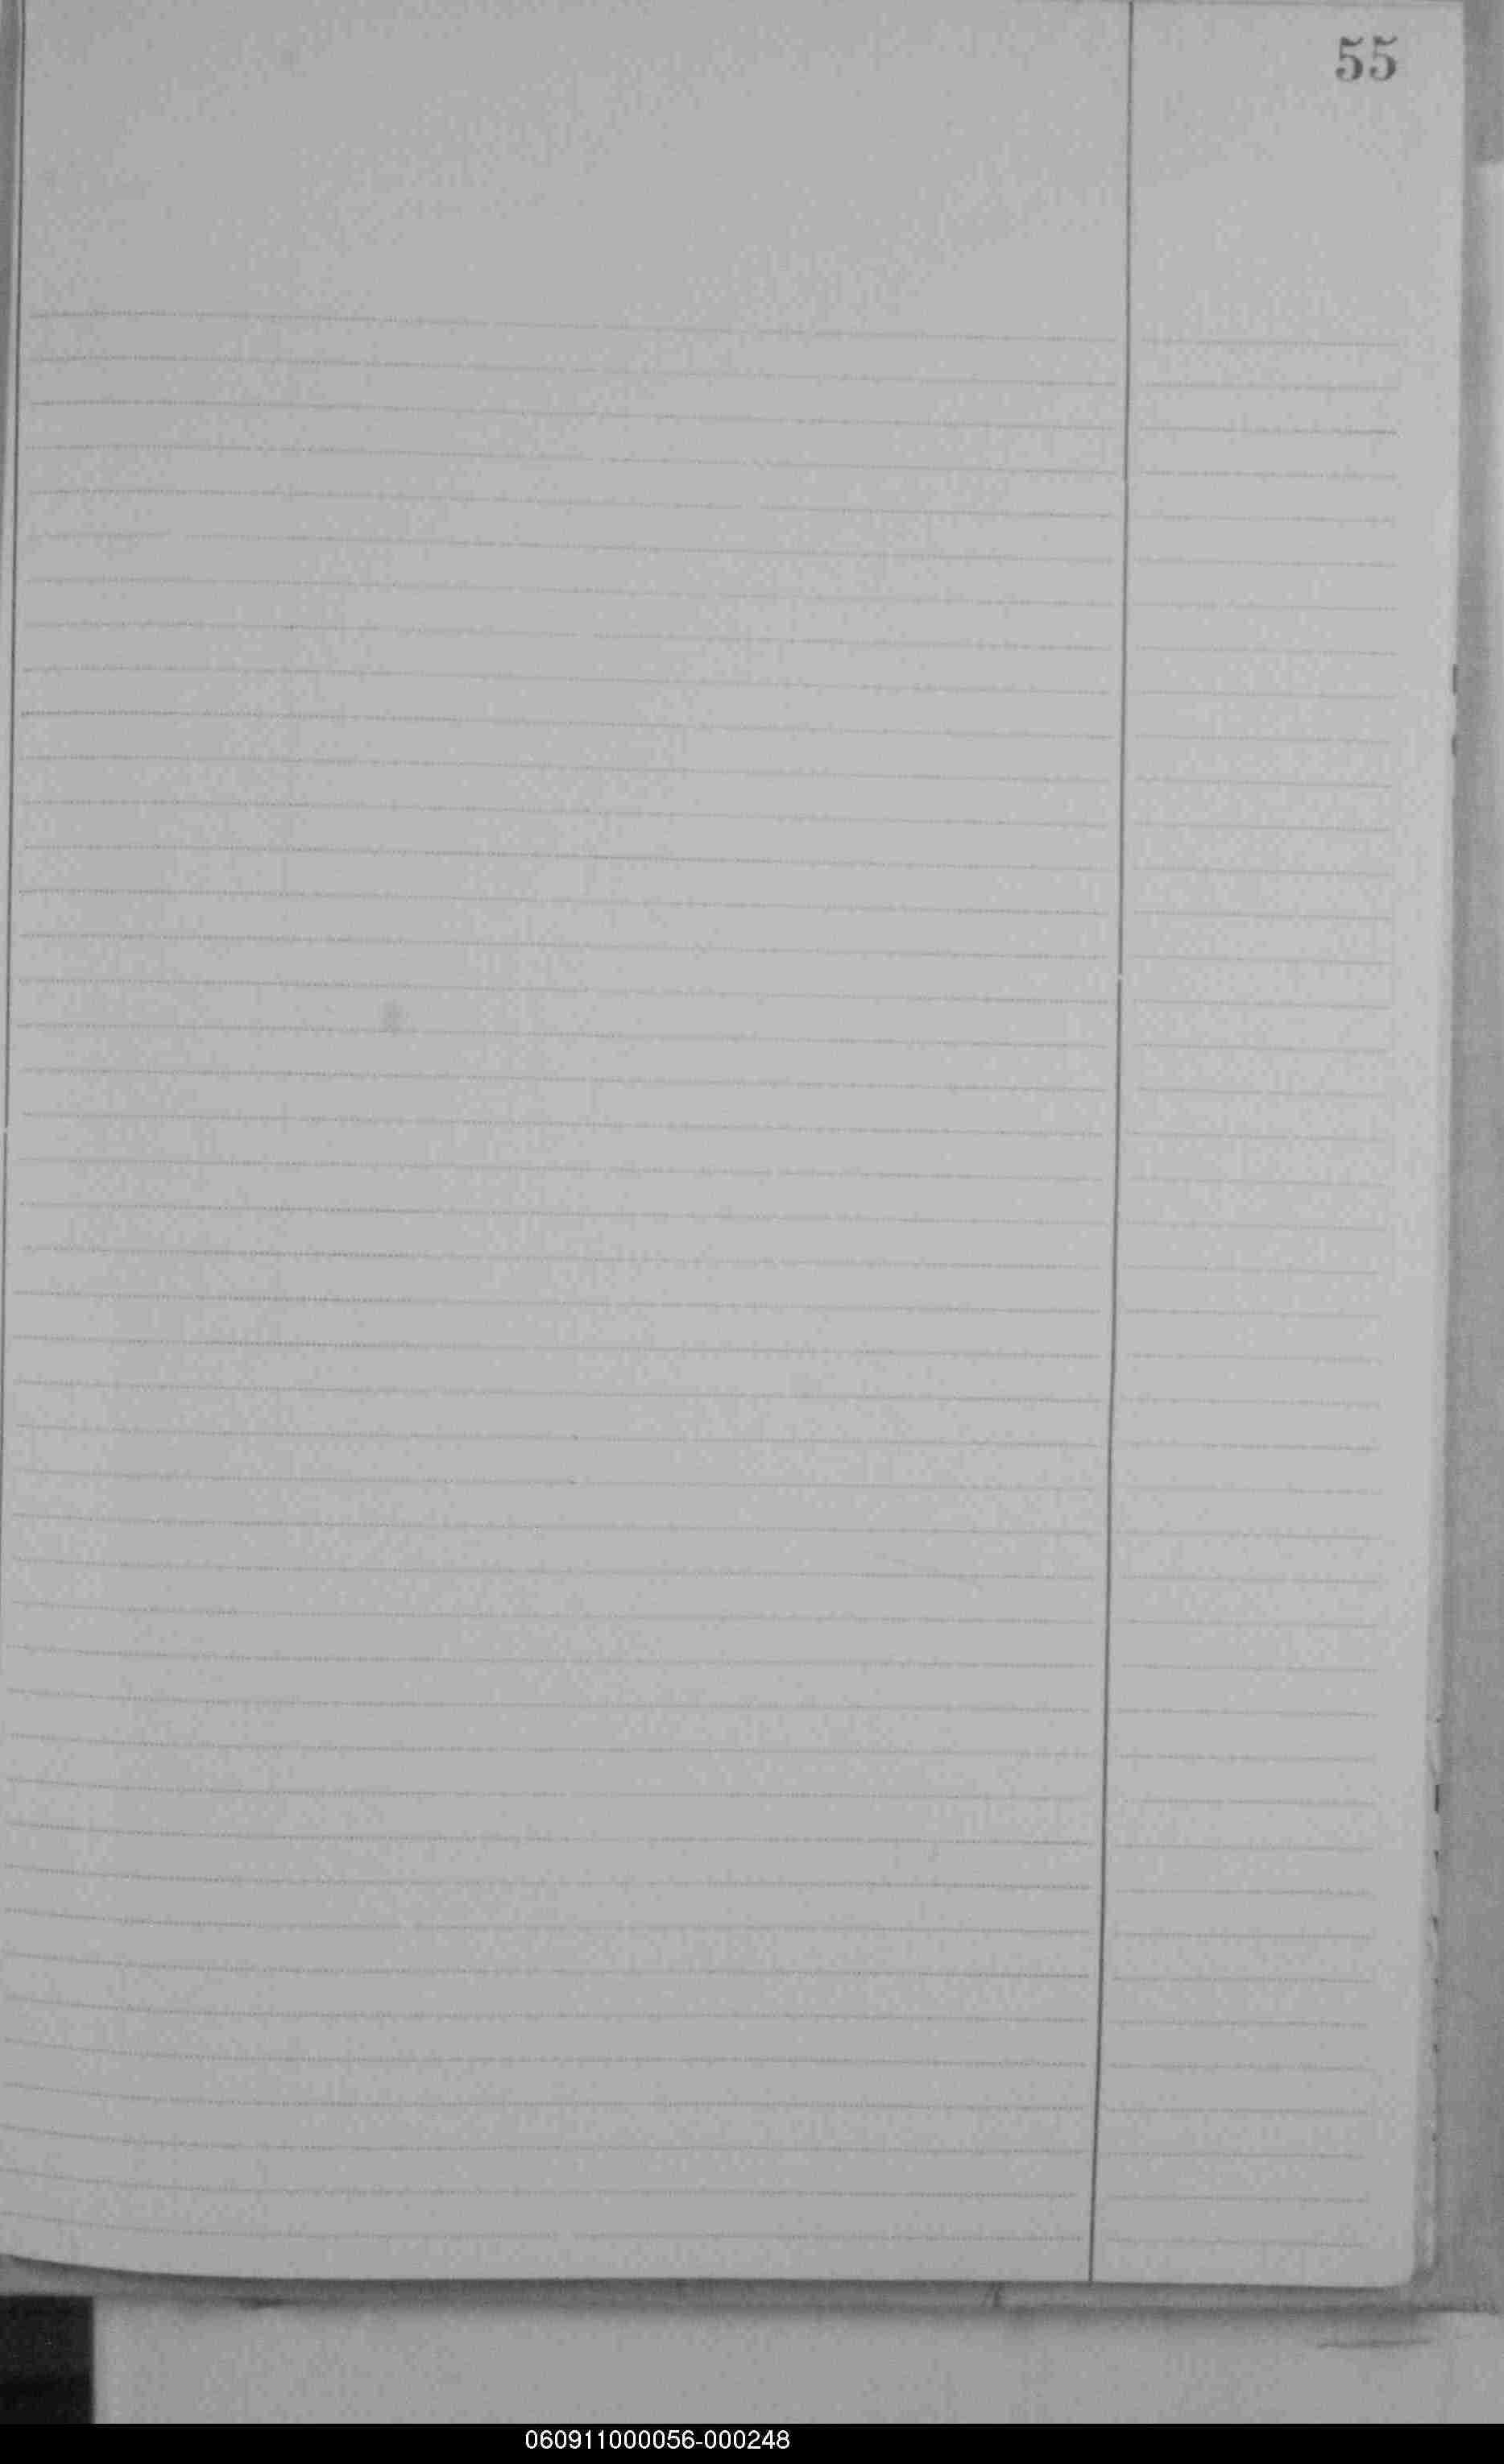 55
060911000056-000248